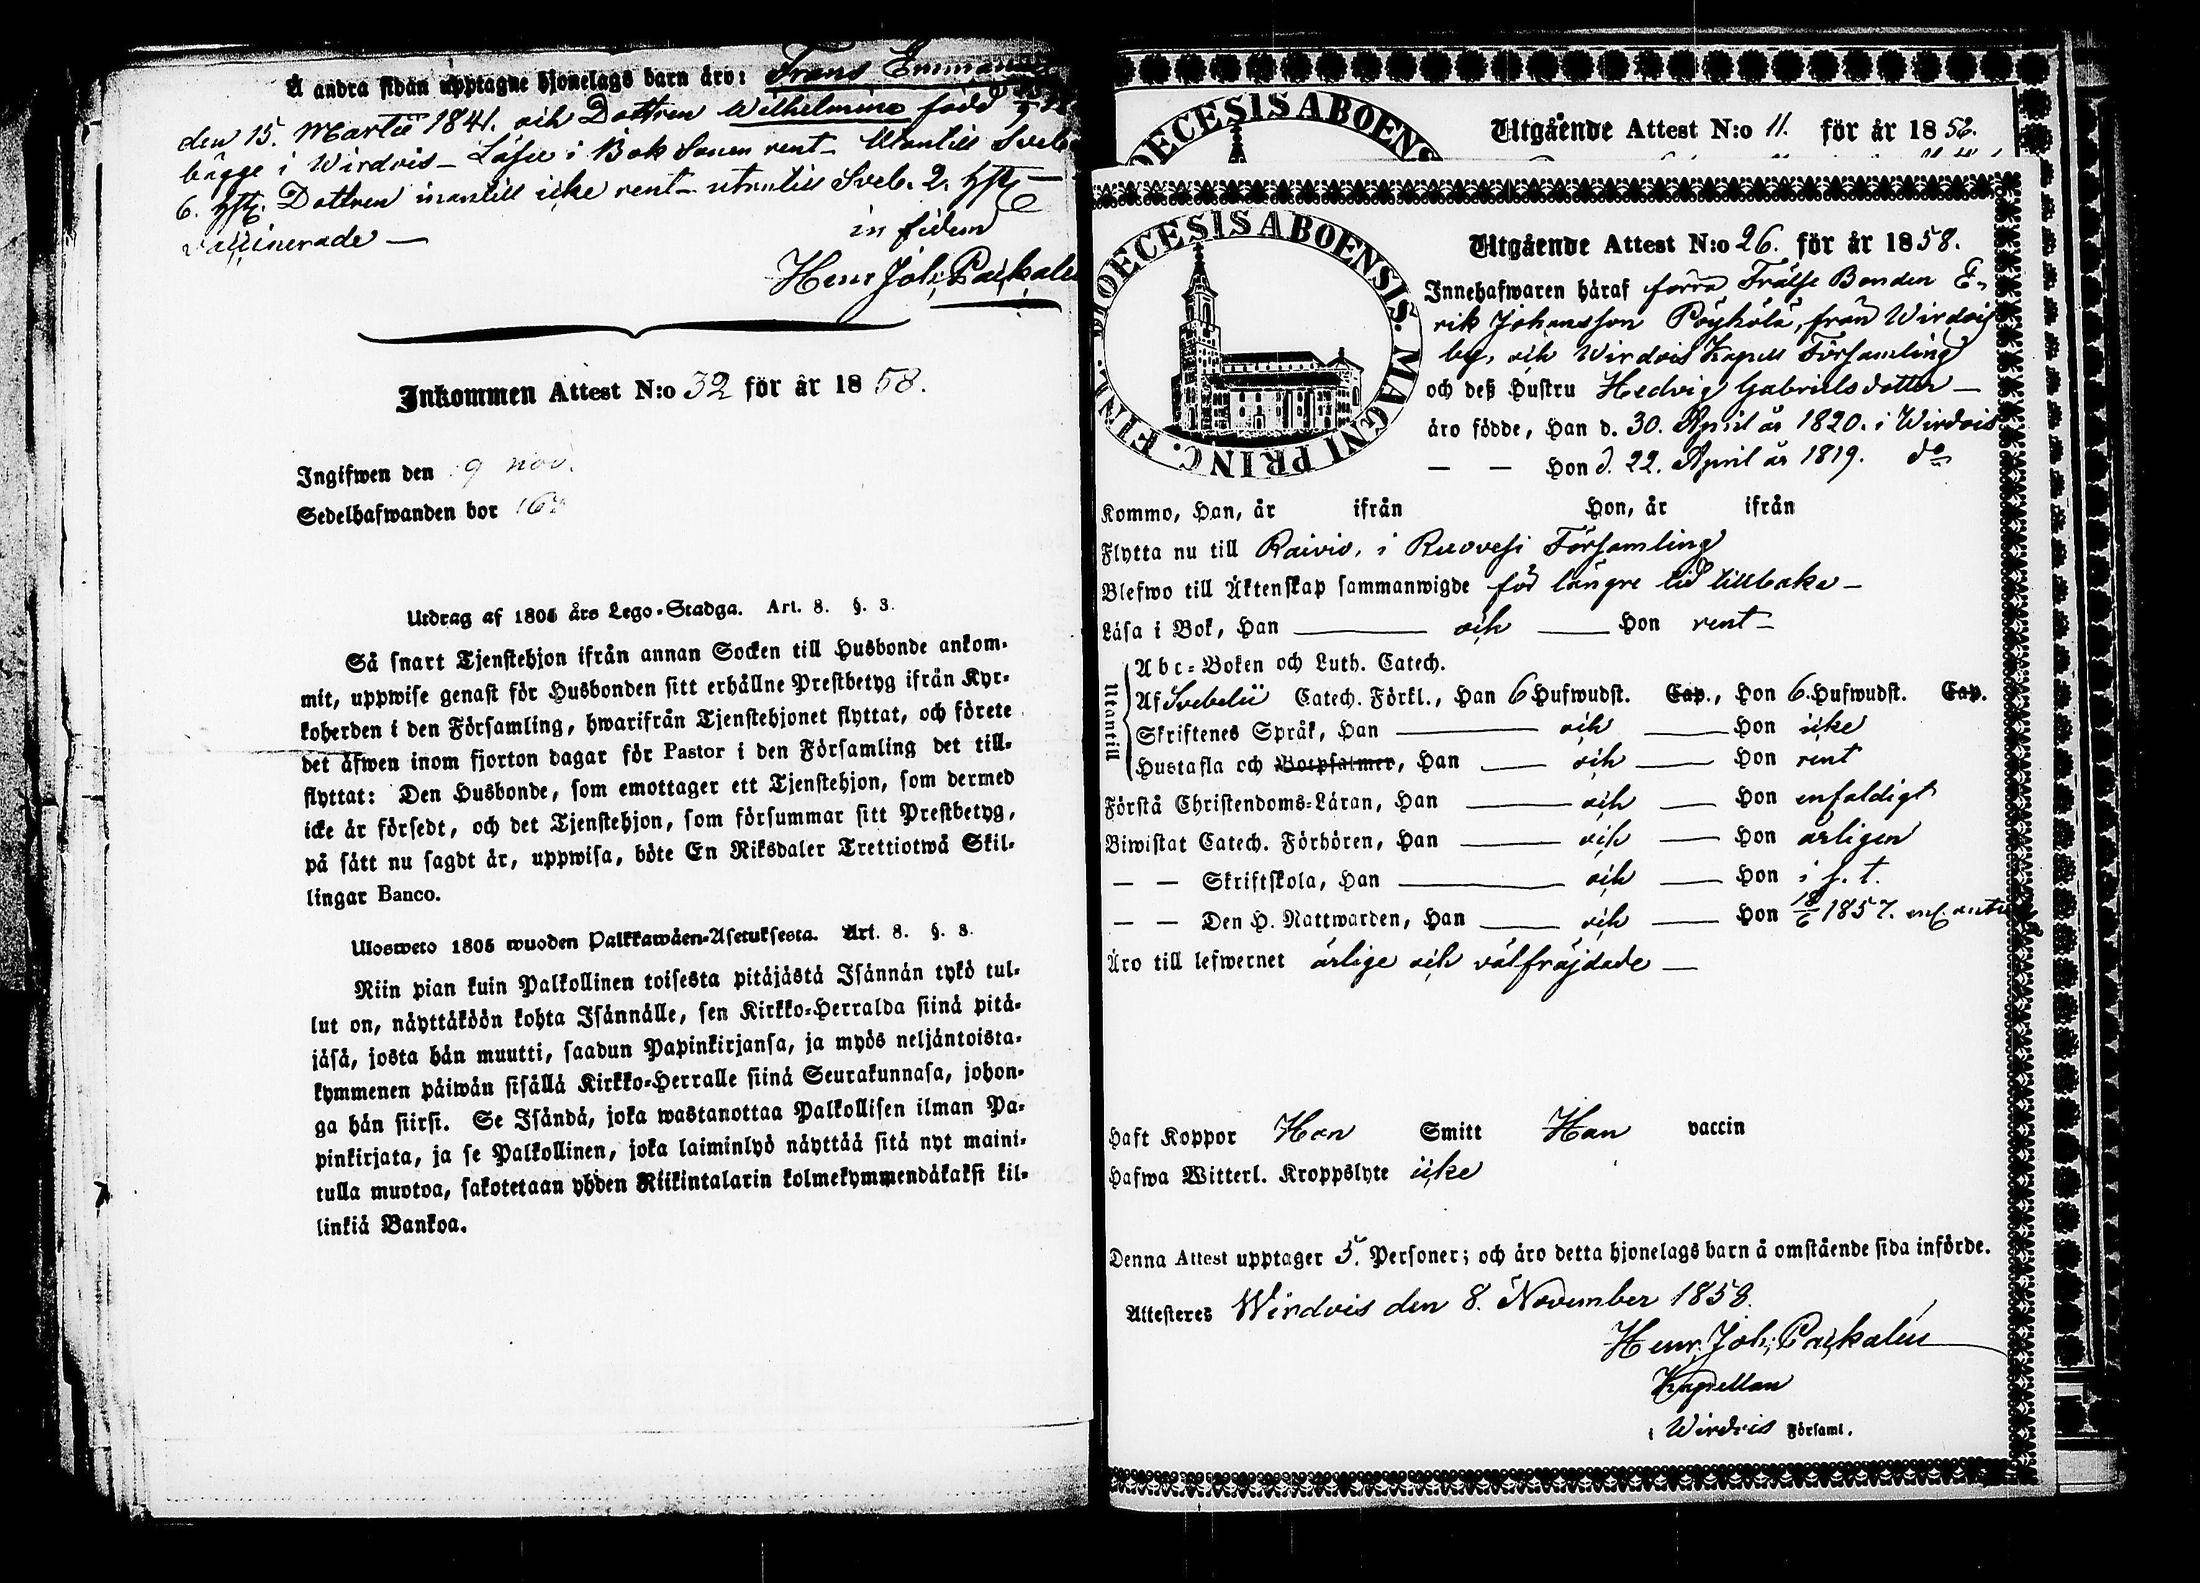 Å andra sidan upptagne hjonelags barn äro: Frans Emmanuel
den 15. Martii 1841. och Dottren Wilhelmina född
bägge i Wirdois – Läser i Bok Sonen rent – Utantill Sveb.
6. hft. Dottren innantill icke rent – utantill Sveb. 2. hft –
vaccinerade –
in fidem
Henr Joh: Paikalén
Inkommen Attest N:o 32 för år 1858.
Ingifwen den 9 nov.
Sedelhafwanden bor
Utdrag af 1805 års Lego-Stadga. Art. 8. §. 3.
Så snart Tjenstehjon ifrån annan Socken till Husbonde ankom-
mit, uppwise genast för Husbonden sitt erhållne Prestbetyg ifrån Kyr-
koherden i den Församling, hwarifrån Tjenstehjonet flyttat, och förete
det äfwen inom fjorton dagar för Pastor i den Församling det till-
flyttat: Den Husbonde, som emottager ett Tjenstehjon, som dermed
icke är försedt, och det Tjenstehjon, som försummar sitt Prestbetyg,
på sätt nu sagdt är, uppwisa, böte En Riksdaler Trettiotwå Skil-
lingar Banco.
Ulosweto 1805 wuoden Palkkawäen-Asetuksesta. Art. 8. §. 3.
Niin pian kuin Palkollinen toisesta pitäjästä Isännän tykö tul-
lut on, näyttäköön kohta Isännälle, sen Kirkko-Herralda siinä pitä-
jäsä, josta hän muutti, saadun Papinkirjansa, ja myös neljäntoista-
kymmenen päiwän sisällä Kirkko-Herralle siinä Seurakunnasa, johon-
ga hän siirsi. Se Isändä, joka wastanottaa Palkollisen ilman Pa-
pinkirjata, ja se Palkollinen, joka laiminlyö näyttää sitä nyt maini-
tulla muotoa, sakotetaan yhden Riikintalarin kolmekymmendäkaksi kil-
linkiä Bankoa.
DIOECESIS ABOENSIS
Utgående Attest N:o 11. för år 1858.
DIOECESIS ABOENSIS. MAGNI PRINC. FINL.
Utgående Attest N:o 26. för år 1858.
Innehafwaren häraf förra Frälse Bonden E-
rik Johansson Pöyhölä, från Wirdois
by, och Wirdois Kapell Församling
och deß Hustru Hedvig Gabrielsdotter –
äro födde, Han d. 30. April år 1820. i Wirdois
– – Hon d. 22. April år 1819. do
Kommo, Han, år ifrån Hon, år ifrån
Flytta nu till Raivio, i Ruovesi Församling
Blefwo till Äktenskap sammanwigde för längre tid tillbaka –
Läsa i Bok, Han — och — Hon rent –
Utantill
Abc-Boken och Luth. Catech.
Af Svebelii Catech. Förkl., Han 6 Hufwudst. Cap., Hon 6. Hufwudst. Cap.
Skriftenes Språk, Han — och — Hon icke
Hustafla och Botpsalmer, Han — och — Hon rent
Förstå Christendoms-Läran, Han — och — Hon enfaldigt
Biwistat Catech. Förhören, Han — och — Hon årligen
– – Skriftskola, Han — och — Hon i s. t.
– – Den H. Nattwarden, Han — och — Hon 18/6 1857.
Äro till lefwernet ärlige och välfräjdade —
Haft Koppor Hon Smitt Han vaccin
Hafwa Witterl. Kroppslyte icke
Denna Attest upptager 5. Personer; och äro detta hjonelags barn å omstående sida införde.
Attesteres Wirdois den 8. November 1858.
Henr. Joh: Paikalén
Kapellan
i Wirdois Församl.